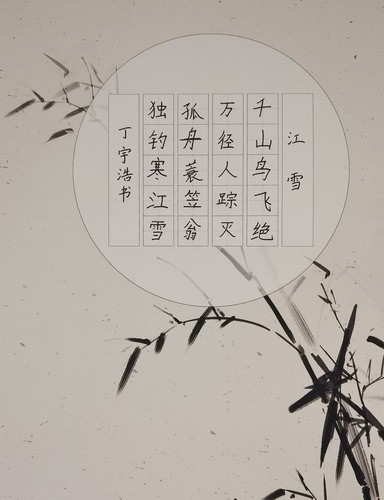 江雪
千山鸟飞绝
万径人踪灭
孤舟蓑笠翁
独钓寒江雪
丁宇浩书